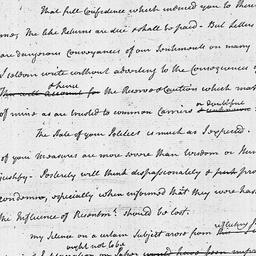 that full Confidence which induced you to
the like Returns are due & shall be paid - But Letters
are dangerous Conveyances of our Sentiments on many
I seldom write without adverting to the Consequences of
& hence
This will account for the Reserve & Caution which
of mine as are trusted to common Carriers or doubtful
The State of your Politics is much as I expected.
of your Measures are more severe than Wisdom or
justify - Posterity will think dispassionately &
condemn, especially when informed that they were
the Influence of Resentmt. should be lost.
my Silence on a certain Subject arose from
ought not to be